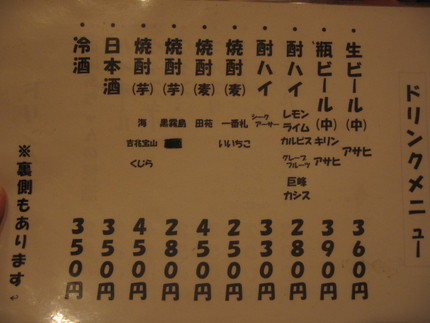 ドリンクメニュー
・生ビール(中) アサヒ 360円
・瓶ビール(中) キリン アサヒ 390円
・酎ハイ レモン ライム カルピス グレープフルーツ 巨峰 カシス 280円
・酎ハイ シークアーサー 330円
・焼酎(麦) 一番札 いいちこ 250円
・焼酎(麦) 田苑 450円
・焼酎(芋) 黒霧島 280円
・焼酎(芋) 海 くじら 450円
・日本酒 350円
・冷酒 350円
※裏側もあります